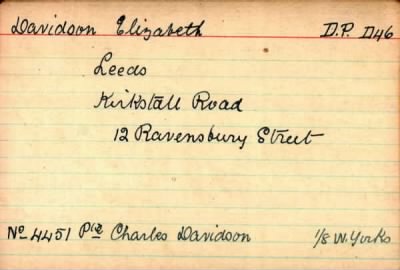 Davidson Elizabeth D.P. D46
Leeds
Kirkstall Road
12 Ravensbury Street
No 4451 Pte Charles Davidson 1/8 W. Yorks